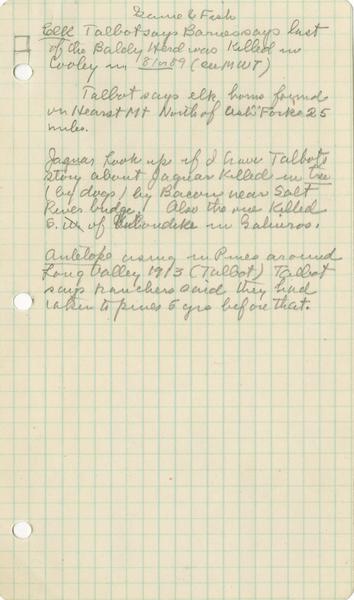 Game & Fish
Elk Talbot says Barnes says last
of the Baldy Herd was killed in
Cooley in 18 or 89 (see MWT)
Talbot says elk horns found
on Hearst Mt North of Ash Forks 25
miles.
Jaguar Look up if I have Talbot's
story about Jaguar killed in tree
(by dogs) by Bacon near Salt
River bridge. Also the one killed
E. of Klondike in Galiuros.
Antelope using in Pines around
Long Valley 1913 (Talbot) Talbot
says ranchers said they had
taken to pines 5 yrs before that.